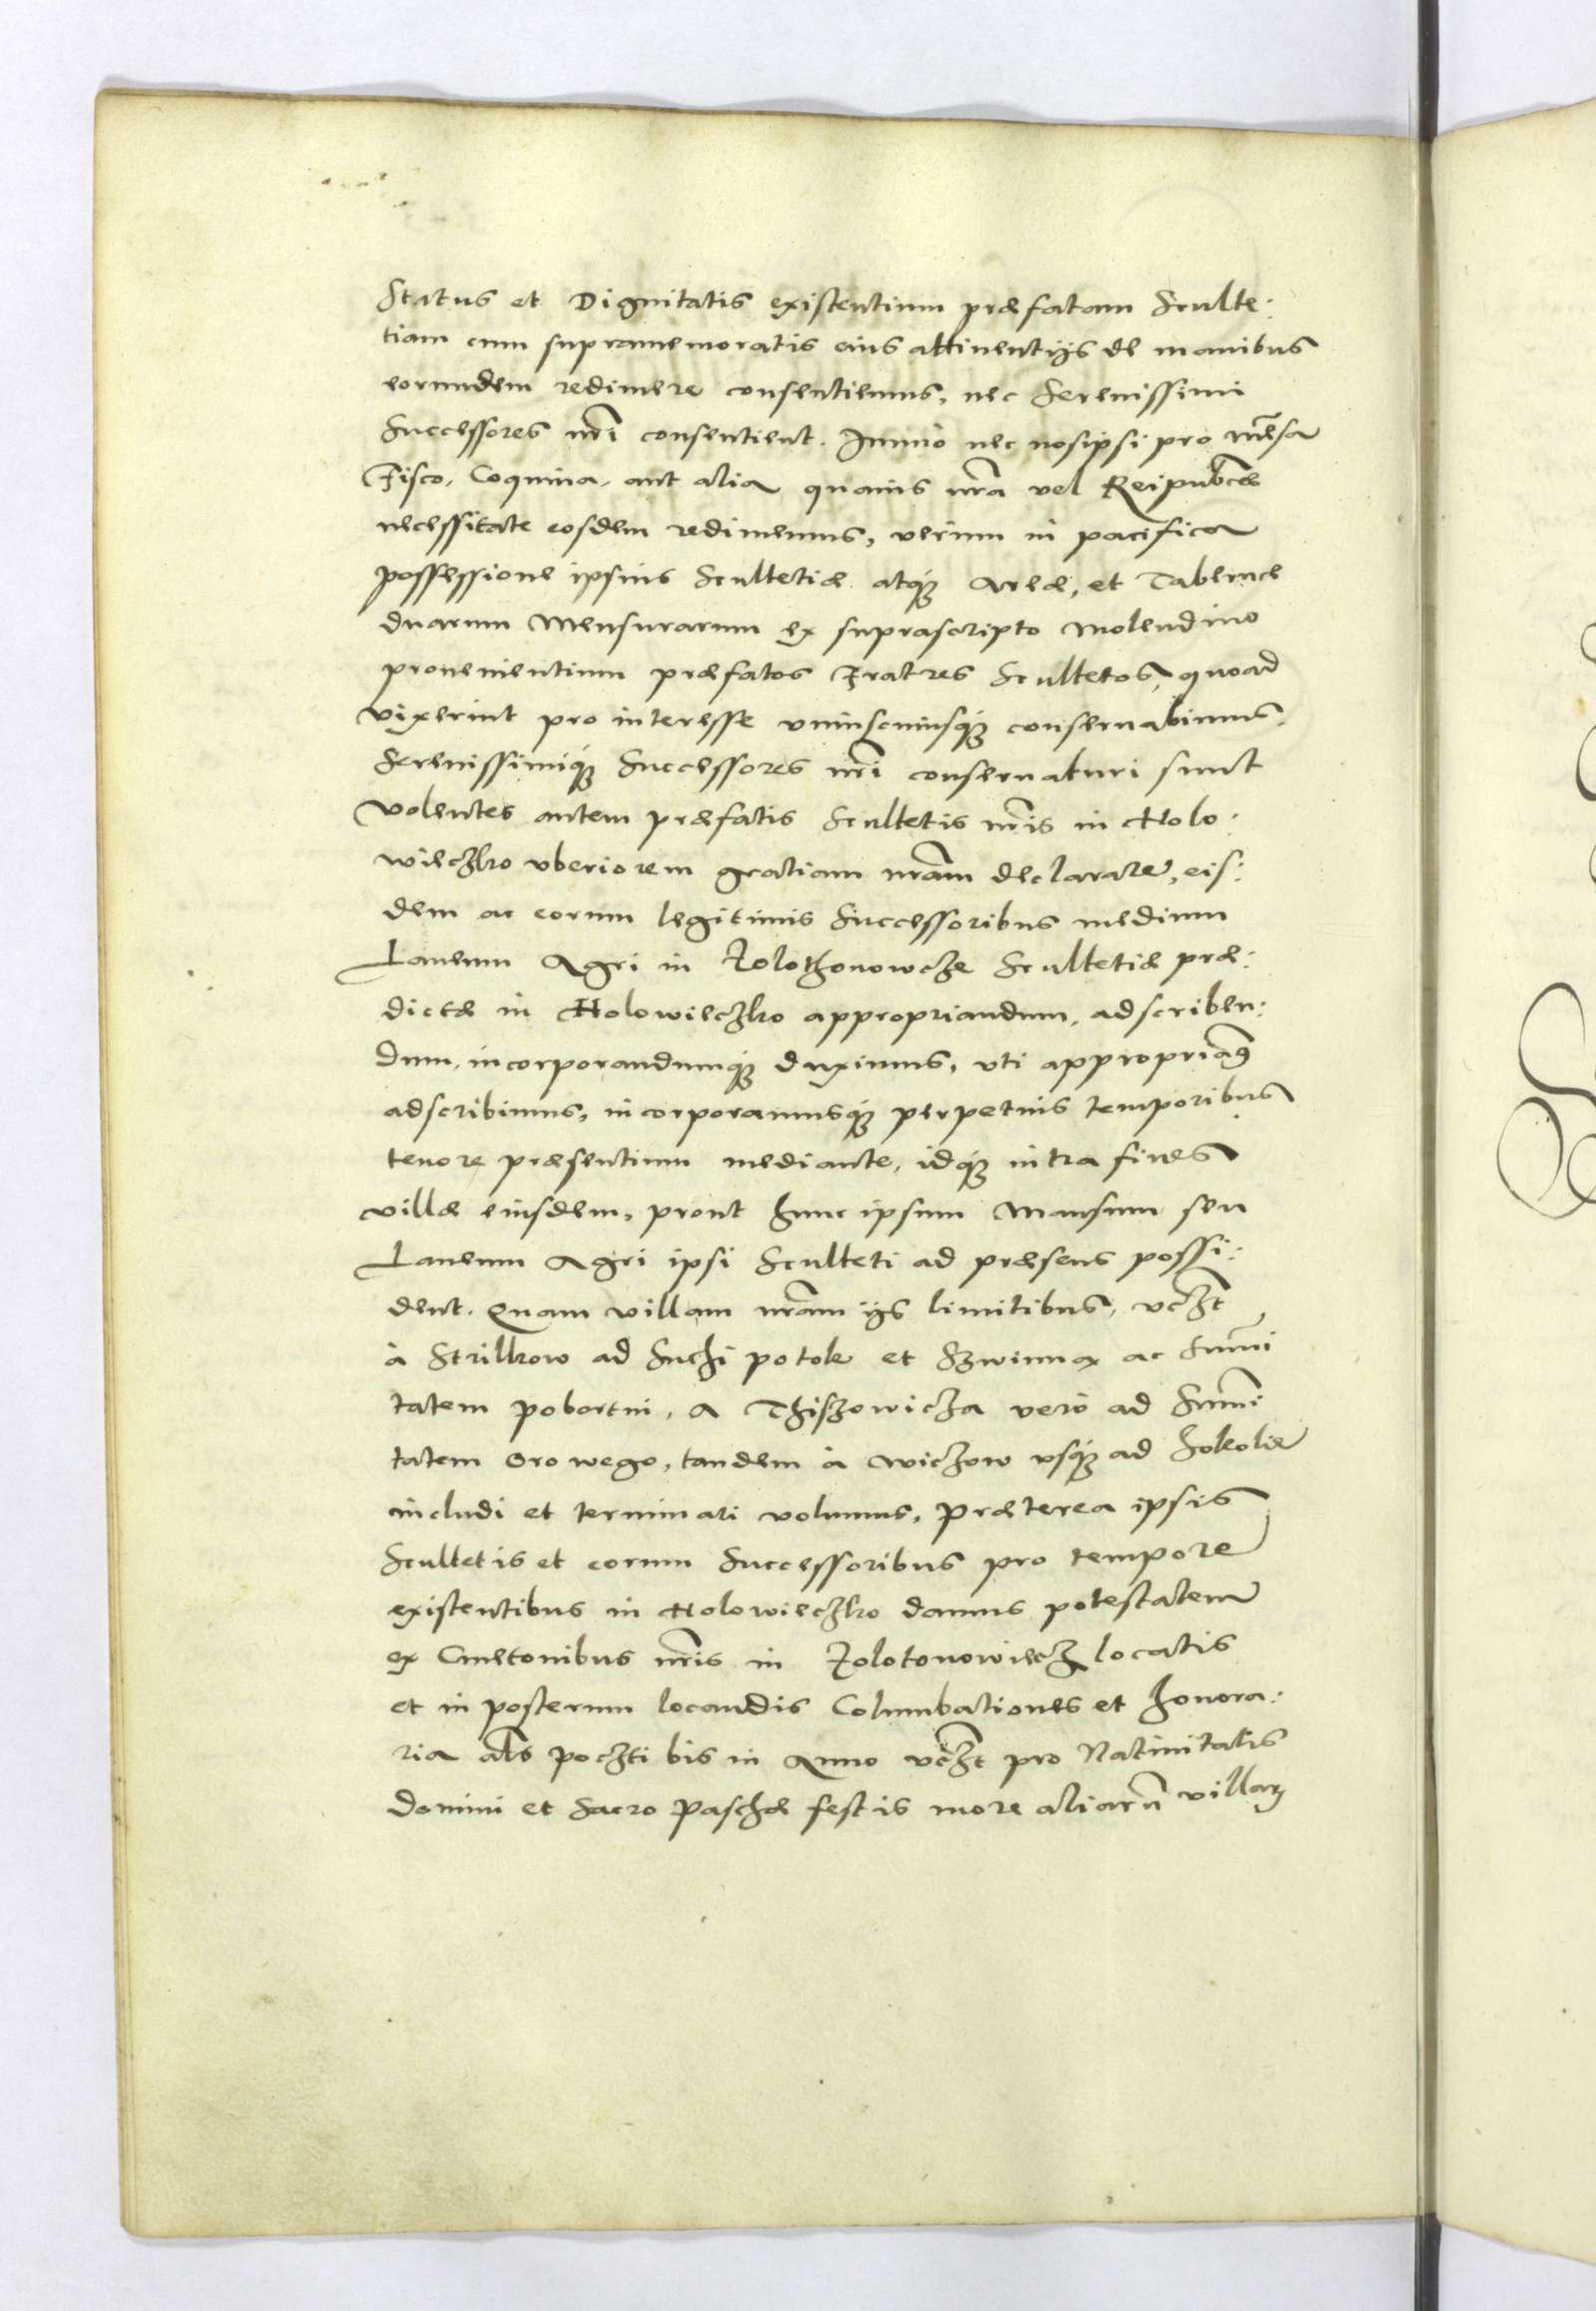 Status et Dignitatis existentium præfatam Sculte:
tiam cum supramemoratis eius attinentijs de manibus
eorundem redimere consentiemus, nec Serenissimi
Successores nr̃i consentient. Immo nec nosipsi pro m̃esa
Fisco, Coquina, aut alia quauis nr̃a vel Reipub̃cæ
necessitate eosdem redimemus, verum in pacifica
possessione ipsius Scultetiæ atq́ue Areæ, et Tabernæ
duarum Mensurarum ex suprascripto Molendino
prouenientium præfatos Fratres Scultetos, quoad
vixerint pro interesse vniuscuiusq́ue conseruabimus.
Serenissimiq́ue Successores nr̃i conseruaturi sunt
Volentes autem præfatis Scultetis nr̃is in Holo:
wieczko vberiorem gratiam nr̃am declarare, eis:
dem ac eorum legitimis Successoribus medium
Laneum Agri in Zolothonowcze Scultetiæ præ:
dictæ in Holowieczko appropriandum, adscriben:
dum, incorporandumq́ue duximus, vti appropriam9
adscribimus, incorporamusq́ue perpetuis temporibus
tenore præsentium mediante, idq́ue intra fines
villæ eiusdem, prout hunc ipsum Mansum seu
Laneum Agri ipsi Sculteti ad præsens possi:
dent. Quam villam nr̃am ijs limitibus, vcz̃t
à Strilkow ad Suchi potok et Szwinna ac Sum̃i
tatem pobortni, a Thiszowicza verò ad Sum̃i
tatem Orowego, tandem à Wiczow vsq́ue ad Sokolie
includi et terminari volumus, Præterea ipsis
Scultetis et eorum Successoribus pro tempore
existentibus in Holowieczko damus potestatem
ex Cmetonibus nr̃is in Zolotonowiecz locatis
et in posterum locandis Columbationes et honora:
ria al̃s poczti bis in Anno vcz̃t pro Natiuitatis
Domini et Sacro Paschæ festis more aliarũ villarꝫ